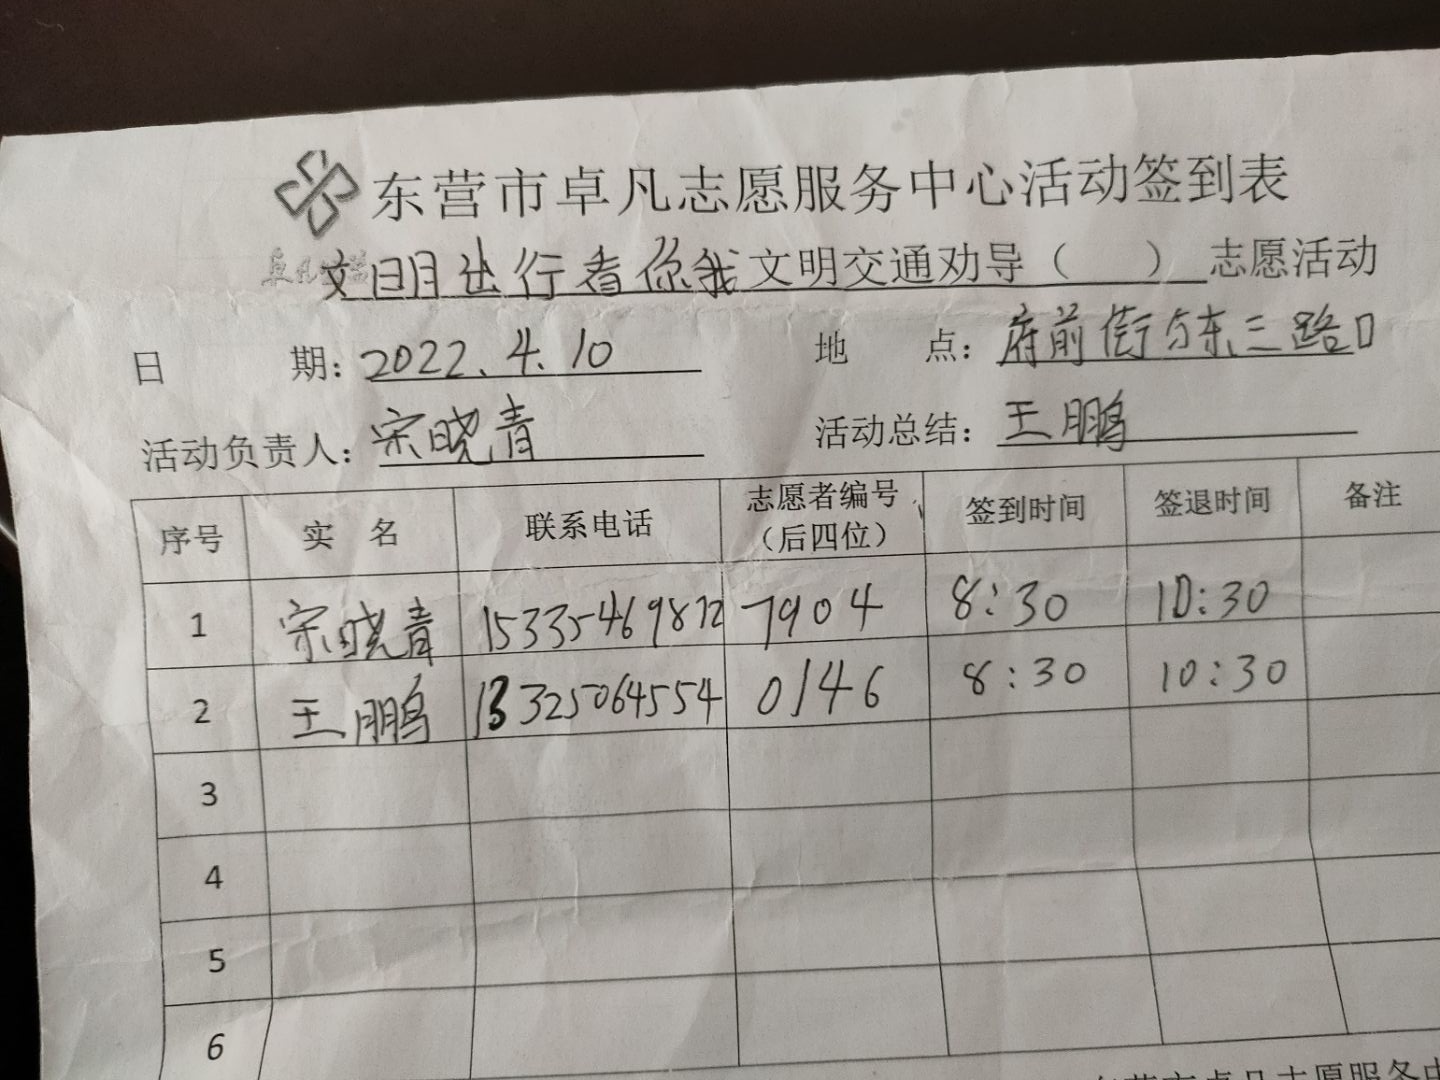 东营市卓凡志愿服务中心活动签到表
文明出行看你我文明交通劝导（ ）志愿活动
日 期：2022.4.10 地 点：府前街与东三路口
活动负责人：宋晓青 活动总结：王鹏
序号 实 名 联系电话 志愿者编号（后四位） 签到时间 签退时间 备注
1 宋晓青 15335469872 7904 8:30 10:30
2 王鹏 13325064554 0146 8:30 10:30
3
4
5
6
东营市卓凡志愿服务中